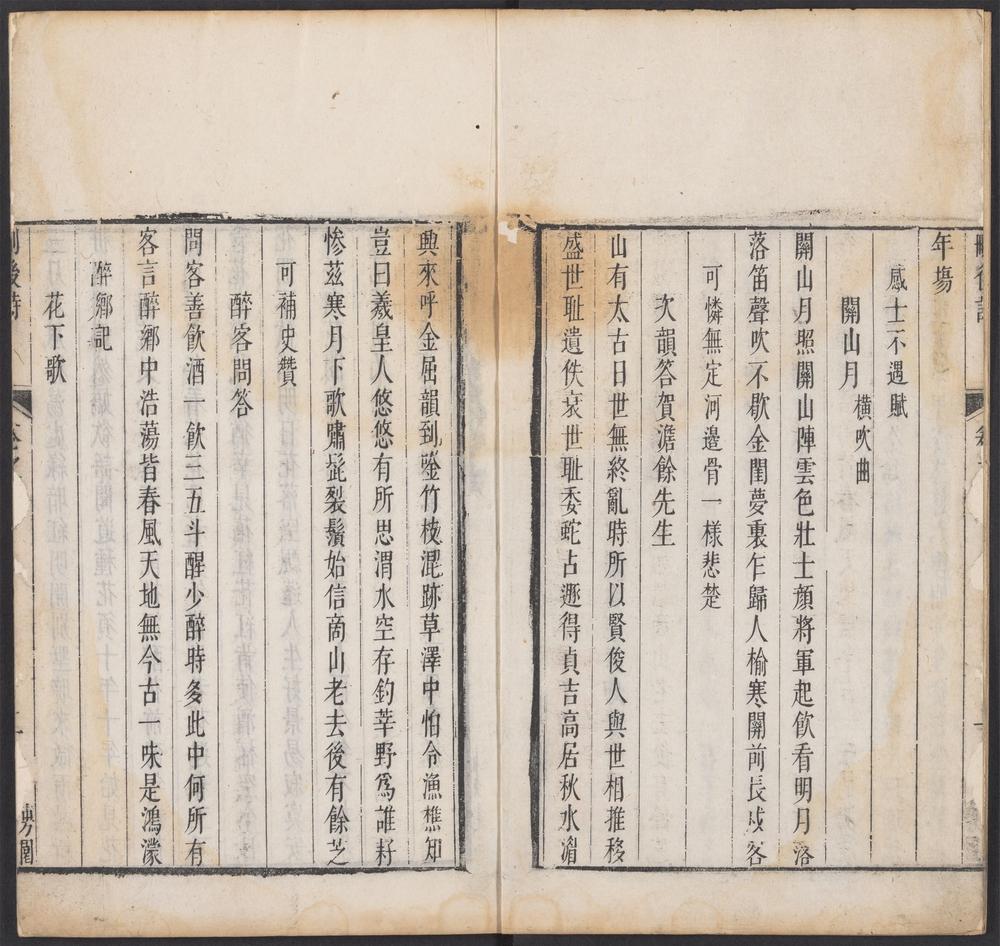 年塲
感士不遇賦
關山月 橫吹曲
關山月照關山陣雲色壯士顔將軍起飲看明月落
落笛聲吹不歇金閨夢裏乍歸人榆寒關前長戍客
可憐無定河邊骨一樣悲楚
次韻答賀澹餘先生
山有太古日世無終亂時所以賢俊人與世相推移
盛世耻遺佚衰世耻委蛇占遯得貞吉高居秋水湄
興來呼金屈韻到竹枝混跡草澤中怕令漁樵知
豈曰羲皇人悠悠有所思渭水空存釣莘野爲誰耔
慘茲寒月下歌嘯髭裂鬚始信商山老去後有餘芝
可補史贊
醉客問答
問客善飲酒一飲三五斗醒少醉時多此中何所有
客言醉鄉中浩蕩皆春風天地無今古一味是鴻濛
醉鄉記
花下歌
後詩